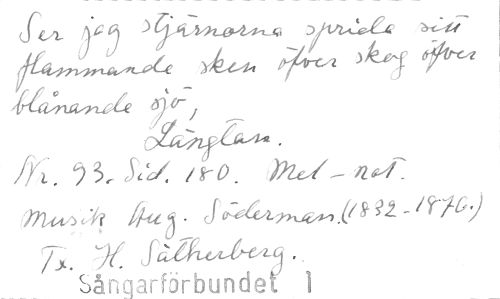 Ser jag stjärnorna sprida sitt
flammande sken öfver skog öfver
blånande sjö,
Längtan.
Nr. 93. Sid. 180. Mel-not.
Musik Aug. Söderman. (1832-1876.)
Tx. H. Sätherberg.
Sångarförbundet 1